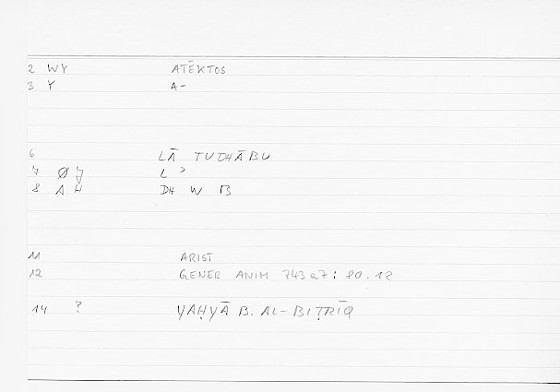 2 WY ATĒKTOS
3 Y A-
6 LĀ TUDHĀBU
7 Ø J L ʾ
8 A H DH W B
11 ARIST
12 GENER ANIM 743a7 : 80.12
14 ? YAḤYĀ B. AL-BIṬRĪQ